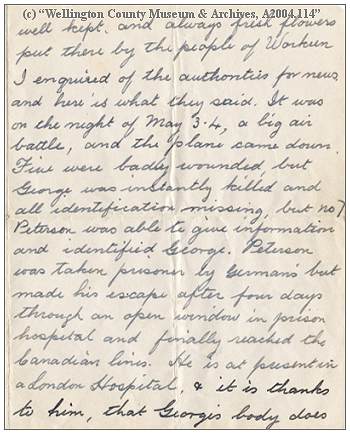 (c) "Wellington County Museum & Archives, A2004.114"
well kept. and always fresh flowers
put there by the people of Workum
I enquired of the authorities for news
and here is what they said. It was
on the night of May 3-4, a big air
battle, and the plane came down.
Five were badly wounded, but
George was instantly killed and
all identification missing, but no 7
Peterson was able to give information
and identified George. Peterson
was taken prisoner by Germans but
made his escape after four days
through an open window in prison
hospital and finally reached the
Canadian lines. He is at present in
a London Hospital, & it is thanks
to him, that Georgis body does